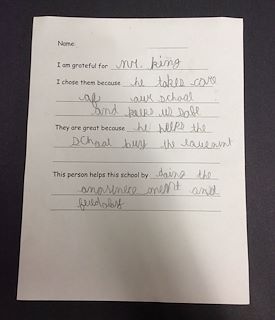 Name:
I am grateful for mr. king
I chose them because he takes care
of our school
and keeps us safe
They are great because he helks the
school buy the
This person helps this school by doing the
and